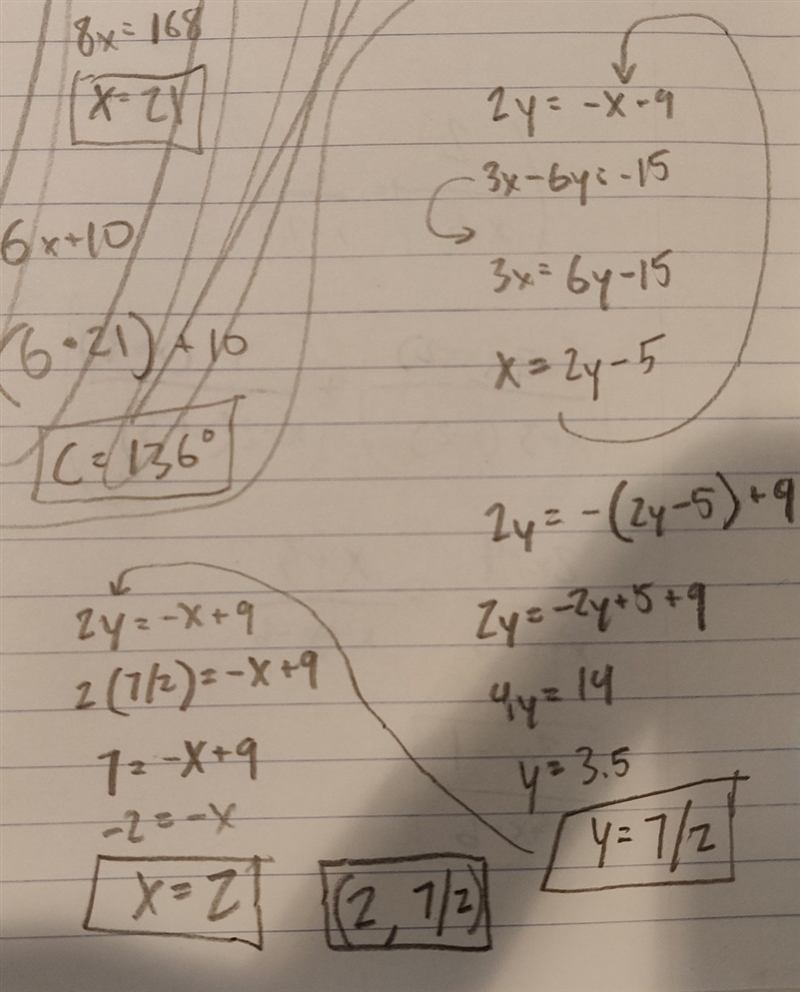 8x = 168
x = 21
6x+10
(6 • 21) + 10
C = 136°
2y = -x - 9
3x-6y = -15
3x = 6y-15
x = 2y - 5
2y = -(2y-5) + 9
2y = -2y+5+9
4y = 14
y = 3.5
y = 7/2
2y = -x + 9
2(7/2) = -x+9
7 = -x+9
-2 = -x
x = 2
(2, 7/2)